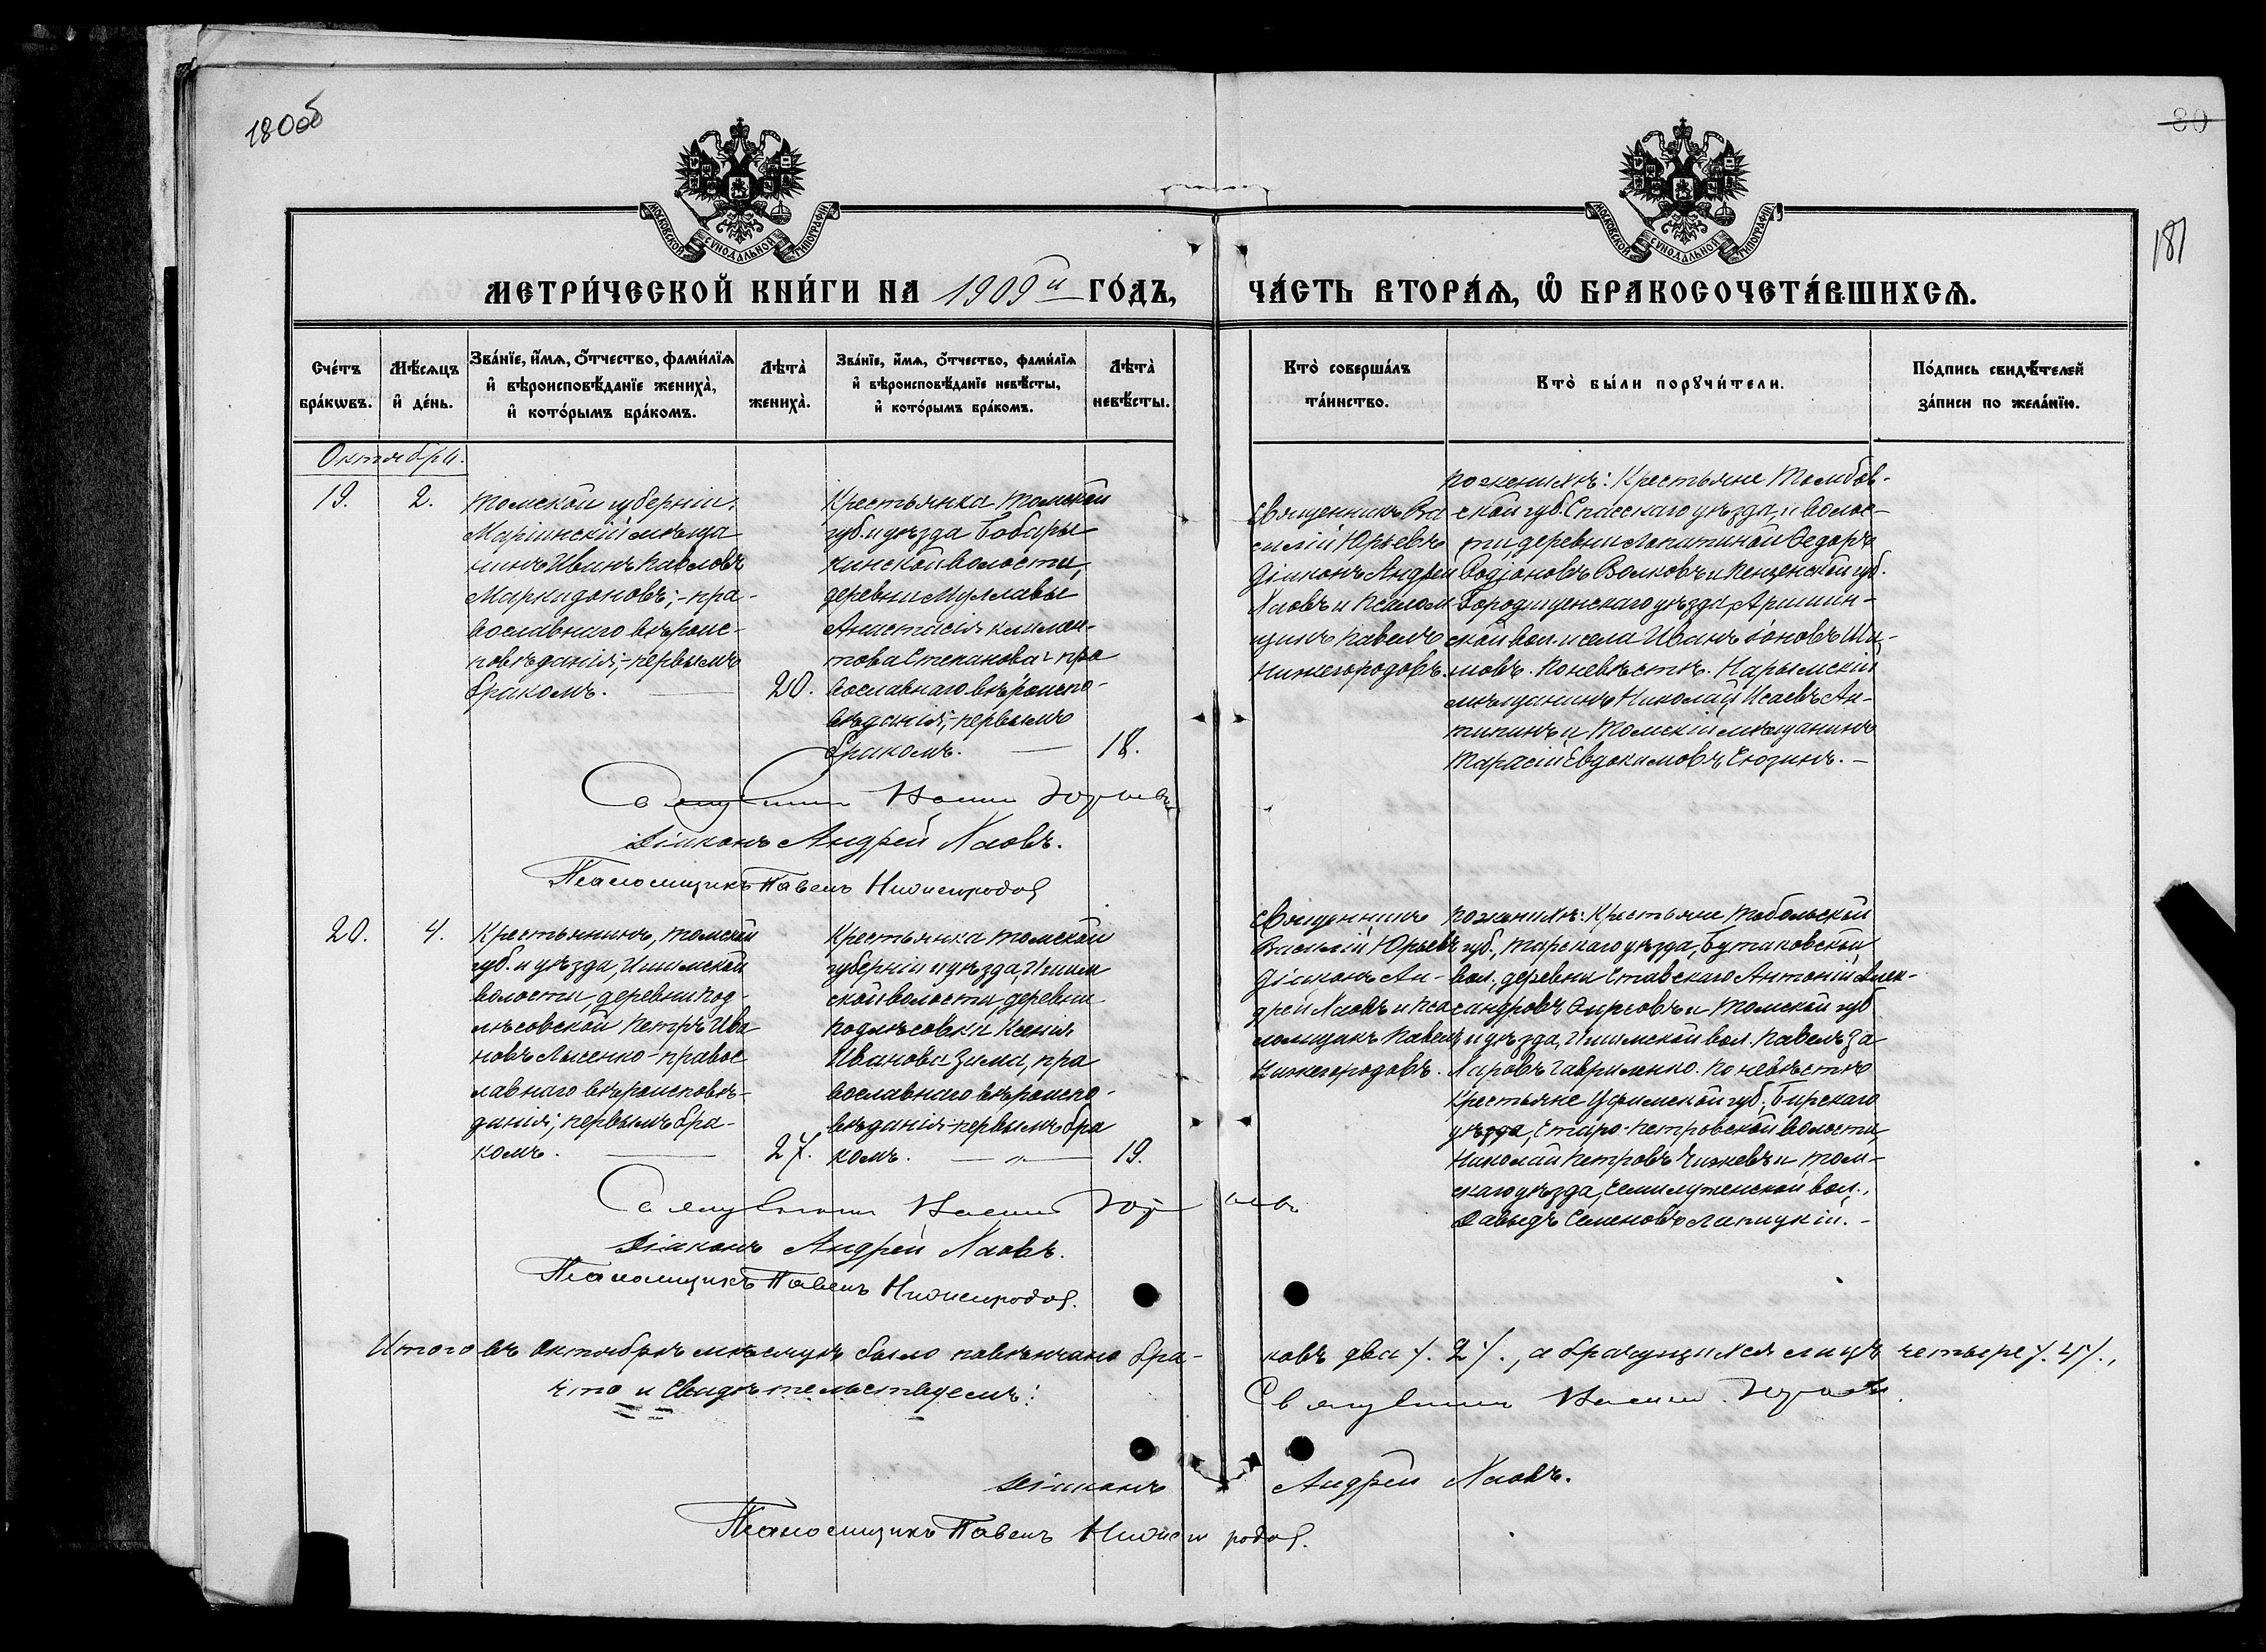 180об
80
181
МОСКОВСКОЙ СУНОДАЛЬНОЙ ТИПОГРАФІИ
МОСКОВСКОЙ СУНОДАЛЬНОЙ ТИПОГРАФІИ
МЕТРИ́ЧЕСКОЙ КНИ́ГИ НА 1909й ГО́ДЪ,
ЧА́СТЬ ВТОРА́Ѧ, Ѽ БРАКОСОЧЕТА́ВШИХСѦ.
Сче́тъ
бра́кѡвъ.
Мѣ́сѧцъ
и҆ де́нь.
Зва́нїе, и҆́мѧ, ѻ҆́тчество, фами́лїѧ
и҆ вѣроисповѣ́данїе жениха̀,
и҆ кото́рымъ бра́комъ.
Лѣта̀
жениха̀.
Зва́нїе, и҆́мѧ, ѻ҆́тчество, фами́лїѧ
и҆ вѣроисповѣ́данїе невѣ́сты,
и҆ кото́рымъ бра́комъ.
Лѣта̀
невѣ́сты.
Кто̀ соверша́лъ
та́инство.
Кто̀ бы́ли порꙋчи́тели.
По́дпись свидѣ́телей
за́писи по жела́нїю.
Октября.
19.
2.
Томской губерніи,
Маріинскій мѣща
нинъ Иванъ Павловъ
Маркидоновъ; - пра-
вославнаго вѣроис-
повѣданія; - первымъ
бракомъ.
20.
Крестьянка Томской
губ. и уѣзда Бобары
кинской волости,
деревни
Анастасія Климен-
това Степанова - пра
вославнаго вѣроиспо-
вѣданія; - первымъ
бракомъ. —
18.
Священникъ Ва
силій Юрьевъ
Діаконъ Андрей
Наовъ и Псалом
щикъ Павелъ
Нижегородовъ.
По женихѣ: Крестьяне Тамбов-
ской губ. Спасскаго уѣзда, и волос-
ти, деревни Лопатиной Ѳедоръ
Родіоновъ Волковъ и Пензенской губ.
Городищенскаго уѣзда, Аршин-
ской вол. и села Иванъ Іоновъ Ши-
мовъ. По невѣстѣ. Нарымскій
мѣщанинъ Николай Исаевъ Ан-
типинъ и Томскій мѣщанинъ
Тарасій Евдокимовъ Сюзинъ. -
Священникъ Василій Юрьевъ
Діаконъ Андрей Наовъ.
Псаломщикъ Павелъ Нижегородов
20.
4.
Крестьянинъ, Томской
губ. и уѣзда, Ишимской
волости, деревни Под-
лѣсовской Петръ Ива
новъ Лысенко - правос
лавнаго вѣроисповѣ-
данія; первымъ бра-
комъ.
27.
Крестьянка Томской
губерніи и уѣзда, Ишим
ской волости, деревни
Подлѣсовки Ксенія
Иванова Зима, пра
вославнаго вѣроиспо-
вѣданія - первымъ бра
комъ. — „ —
19.
Священникъ
Василій Юрьевъ
Діаконъ Ан-
дрей Наовъ и Пса
ломщикъ Павелъ
Нижегородовъ.
По женихѣ: Крестьяне Тобольской
губ., Тарскаго уѣзда, Бутаковской
вол., деревни Ставскаго Антоній Алек-
сандровъ и Томской губ
и уѣзда, Ишимской вол. Павелъ За
харовъ Гавриленко. По невѣстѣ
Крестьяне Уфимской губ., Бирскаго
уѣзда, Старо-Петровской волости,
Николай Петровъ Чижевъ и Том-
скаго уѣзда, Семилуженской вол.,
Давыдъ Семеновъ Лапицкій. -
Священникъ Василій Юрьевъ
Діаконъ Андрей Наовъ.
Псаломщикъ Павелъ Нижегородов.
Итого въ Октябрѣ мѣсяцѣ было повѣнчано бра-ковъ два /. 2 /., а брачущихся лицъ четыре /. 4 /.,
что и свидѣтельствуемъ: Священникъ Василій Юрьевъ.
Діаконъ Андрей Наовъ.
Псаломщикъ Павелъ Нижегородов.